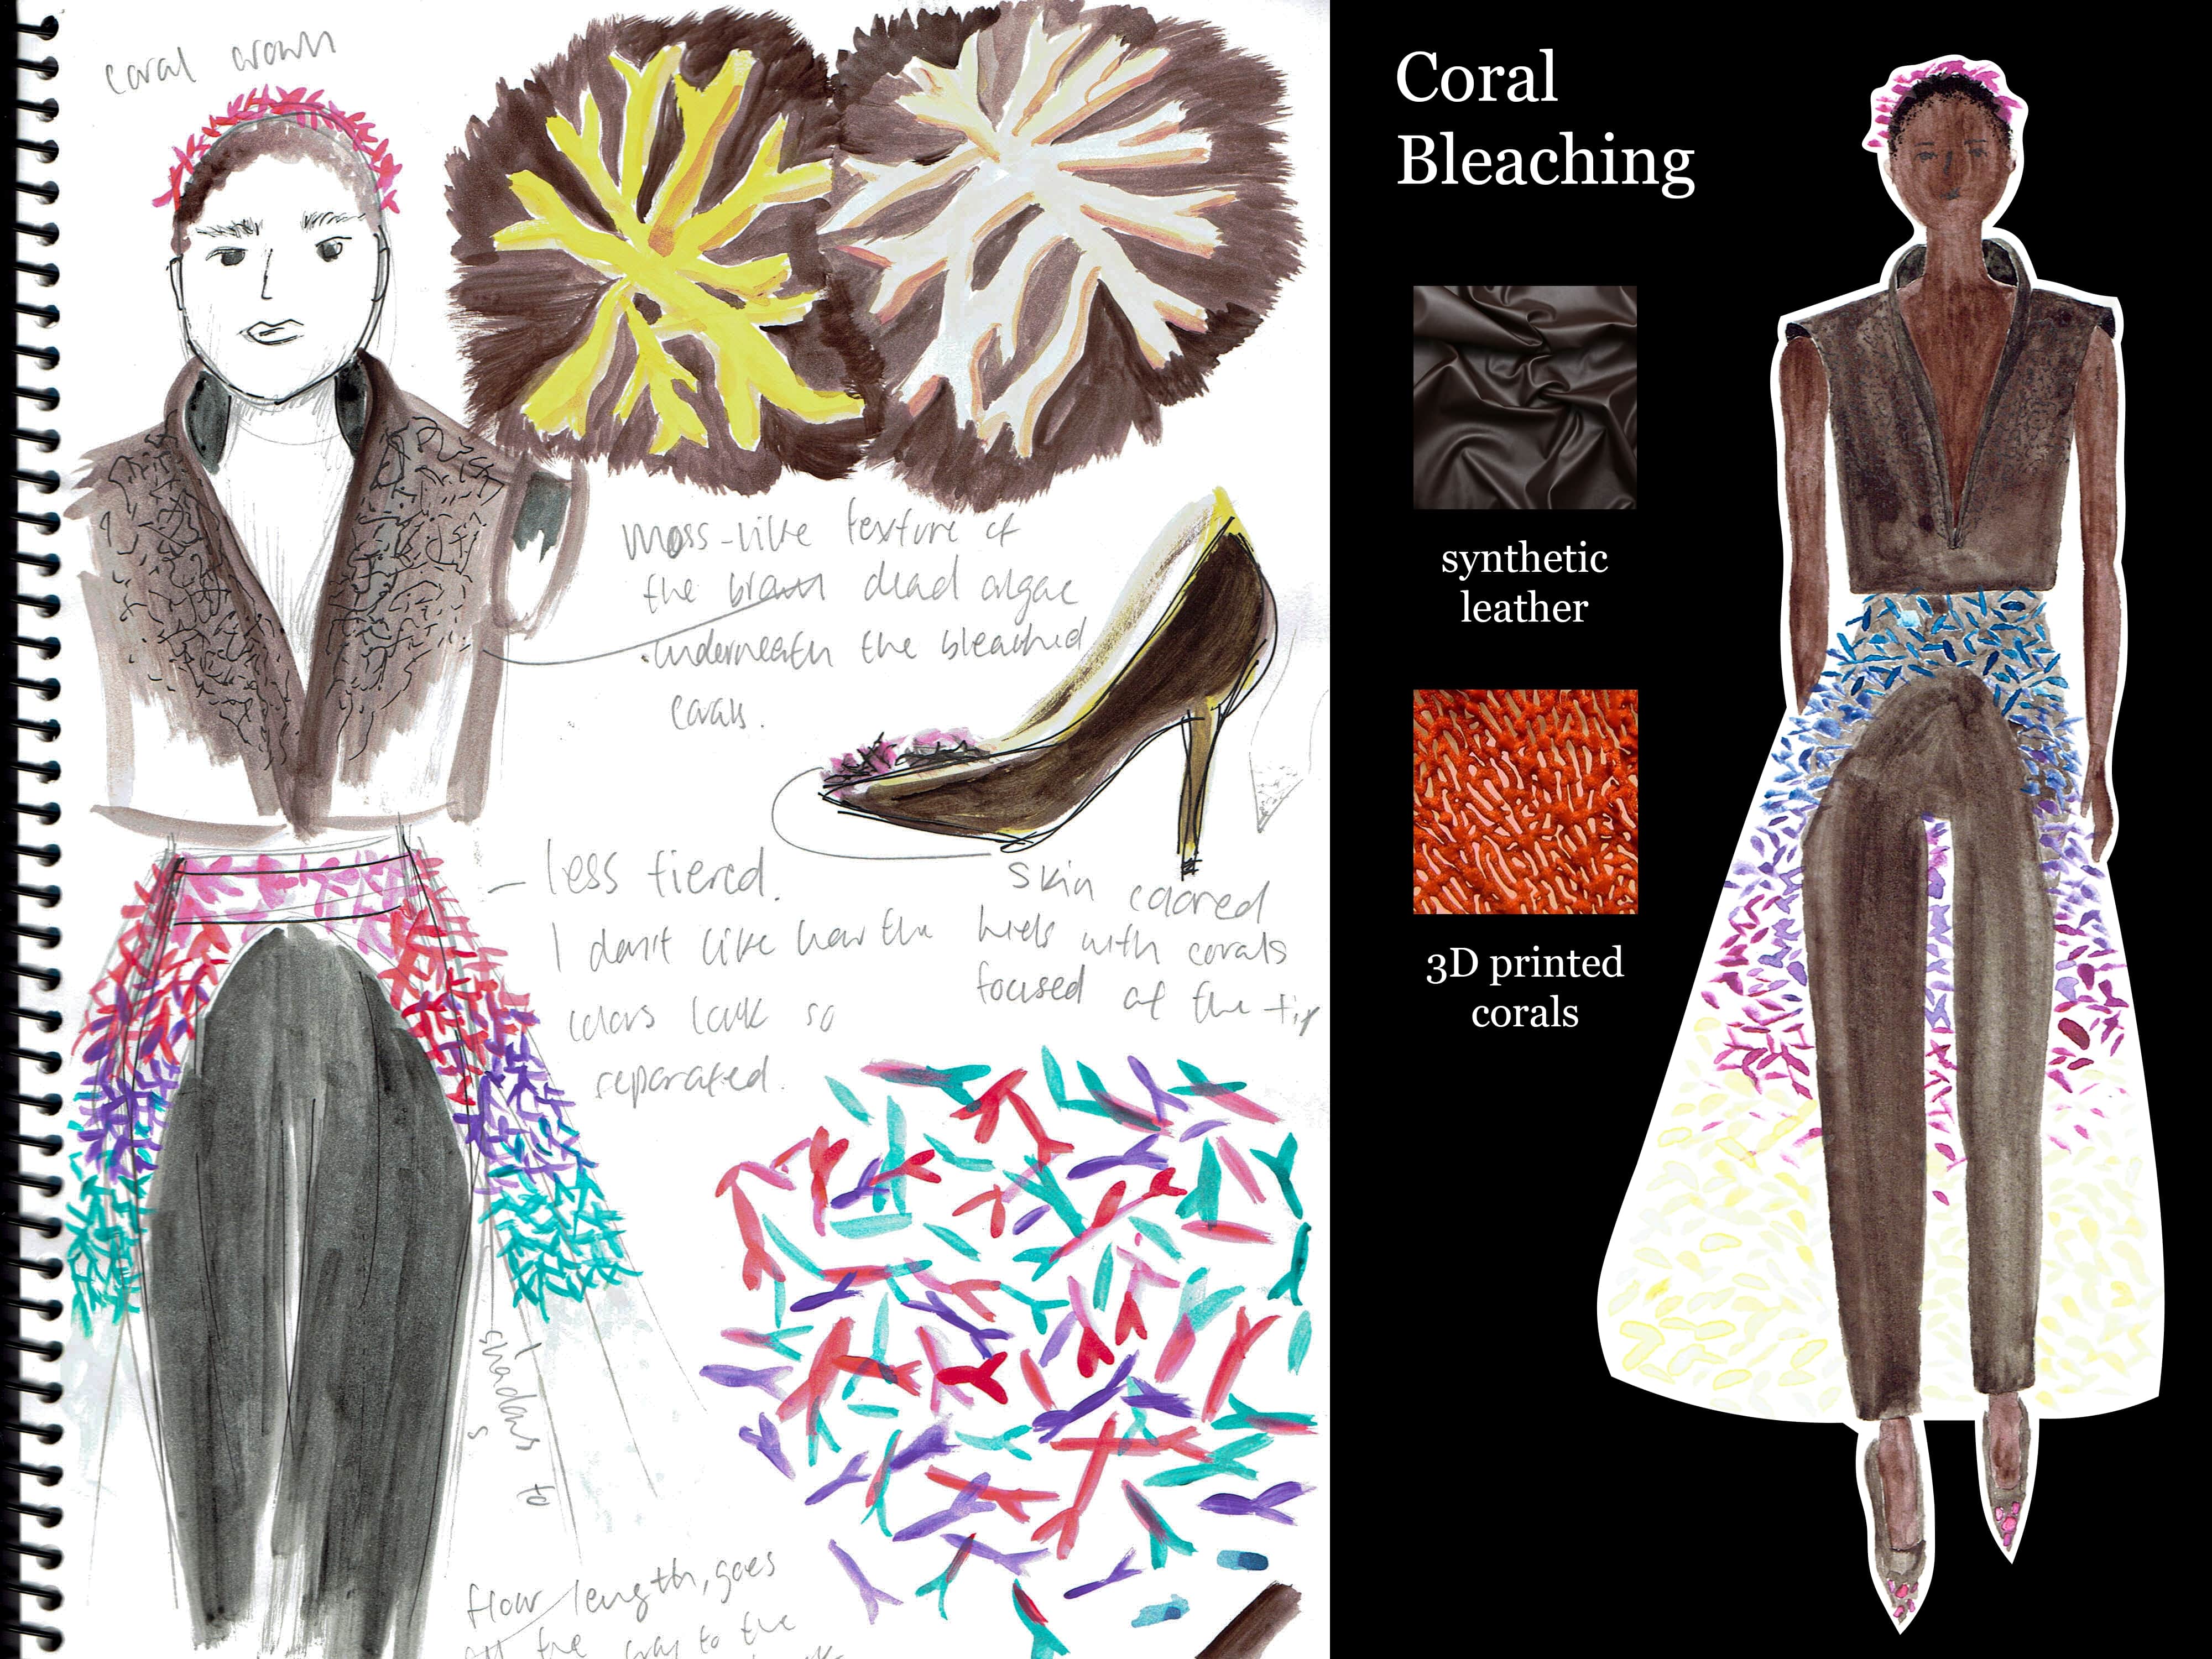 coral crown
moss-like texture of
the brown dead algae
underneath the bleached
corals.
less tiered.
I don't like how the
colors look so
separated.
skin colored
heels with corals
focused at the tip
to
floor length, goes
all the way to the
Coral
Bleaching
synthetic
leather
3D printed
corals